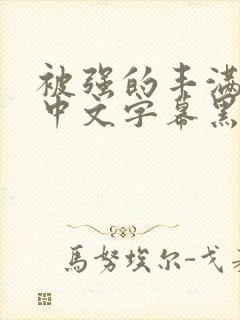 被强的丰满
中文字幕黑
馬努埃尔-戈